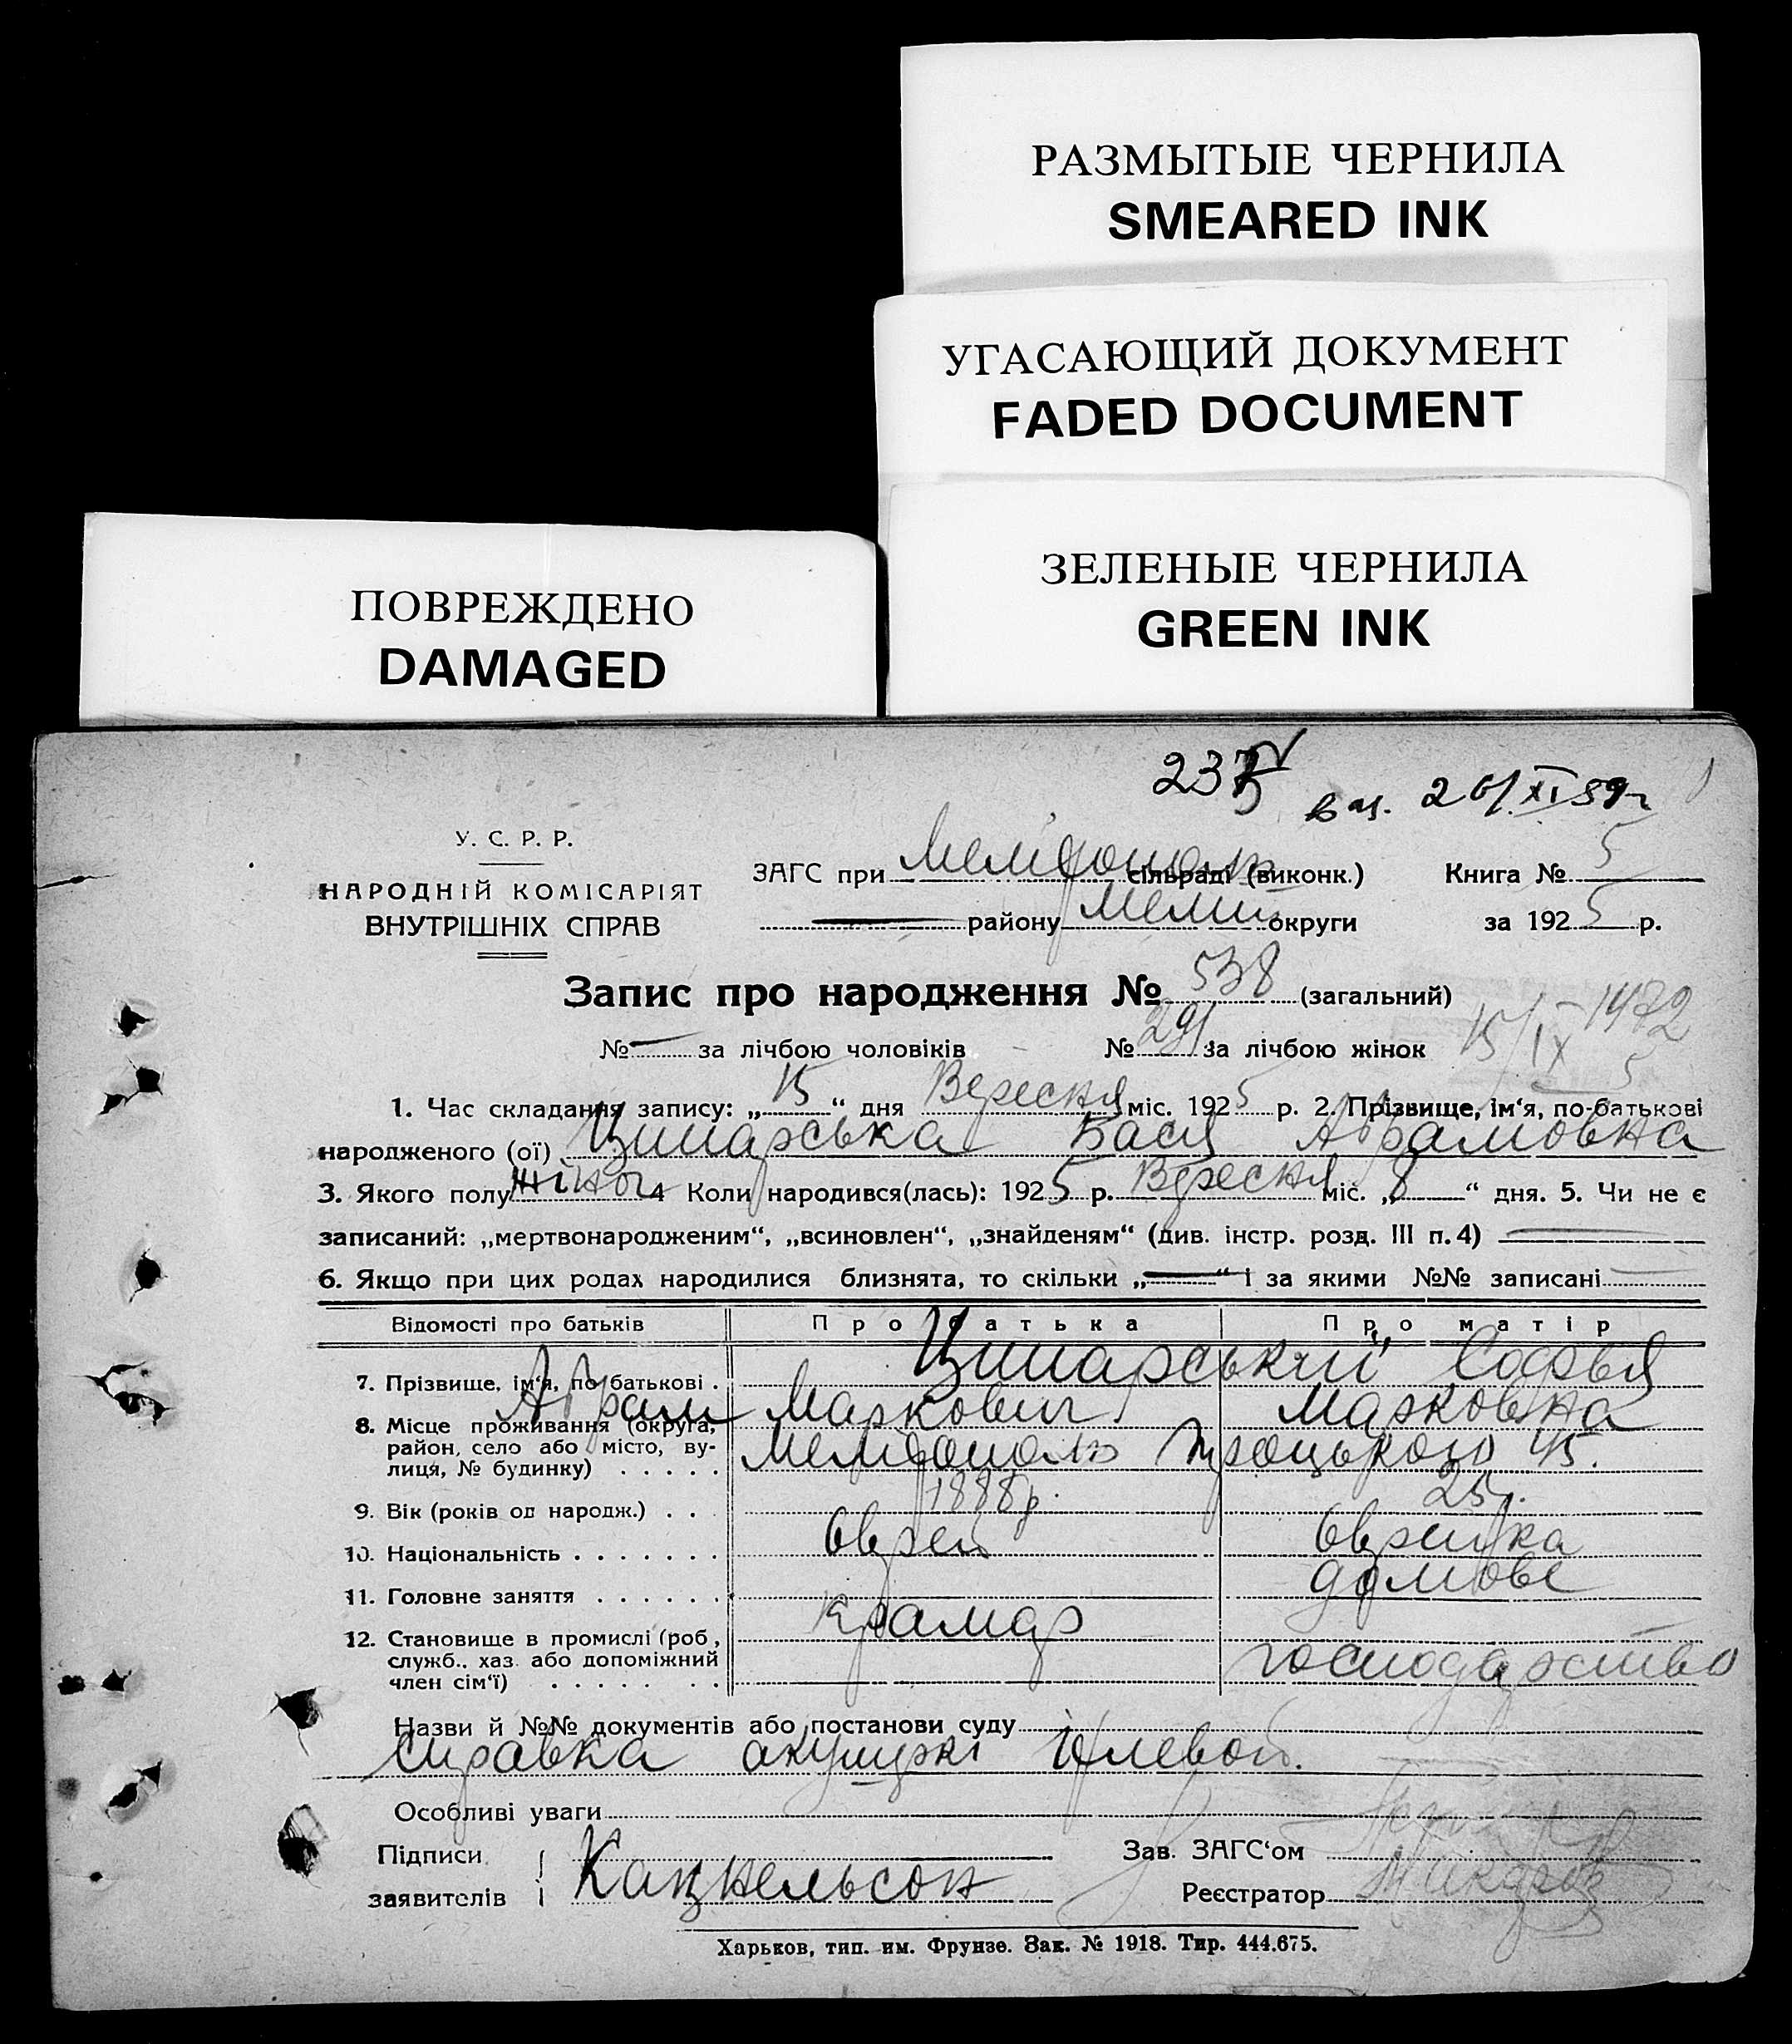 РАЗМЫТЫЕ ЧЕРНИЛА
SMEARED INK
УГАСАЮЩИЙ ДОКУМЕНТ
FADED DOCUMENT
ЗЕЛЕНЫЕ ЧЕРНИЛА
GREEN INK
ПОВРЕЖДЕНО
DAMAGED
20/XI 59г
У. С. Р. Р.
НАРОДНІЙ КОМІСАРІЯТ
ВНУТРІШНІХ СПРАВ
ЗАГС при Мелітополь сільраді (виконк.) Книга № 5
району Меліт округи за 1925 р.
Запис про народження № 538 (загальний)
№ — за лічбою чоловіків № 291 за лічбою жінок
15/IX 5
1. Час складання запису: „15“ дня Вересня міс. 1925 р. 2. Прізвище, ім‘я, по-батькові
народженого (ої) Ципарська Бася Абрамовна
3. Якого полу жіноч 4 Коли народився(лась): 1925 р. Вересня міс. „8“ дня. 5. Чи не є
записаний: „мертвонародженим“, „всиновлен“, „знайденям“ (див. інстр. розд. III п. 4) —
6. Якщо при цих родах народилися близнята, то скільки „—“ і за якими №№ записані —
Відомості про батьків Про батька Про матір
7. Прізвище, ім‘я, по батькові . Ципарський Софья
Абрам Маркович Марковна
8. Місце проживання (округа,
район, село або місто, ву-
лиця, № будинку) . . . . . Мелітополь Троцького 45.
9. Вік (років од народж.) . . . 1888р. 25р.
10. Національність . . . . . . . Єврей Єврейка
11. Головне заняття . . . . . . домове
Крамар
12. Становище в промислі (роб,
служб., хаз. або допоміжний
член сім‘ї) . . . . . . . господарство
Назви й №№ документів або постанови суду
Справка акушеркі
Особливі уваги
Підписи
заявителів Кацнельсон
Зав. ЗАГС‘ом
Реєстратор
Харьков, тип. им. Фрунзе. Зак. № 1918. Тир. 444.675.